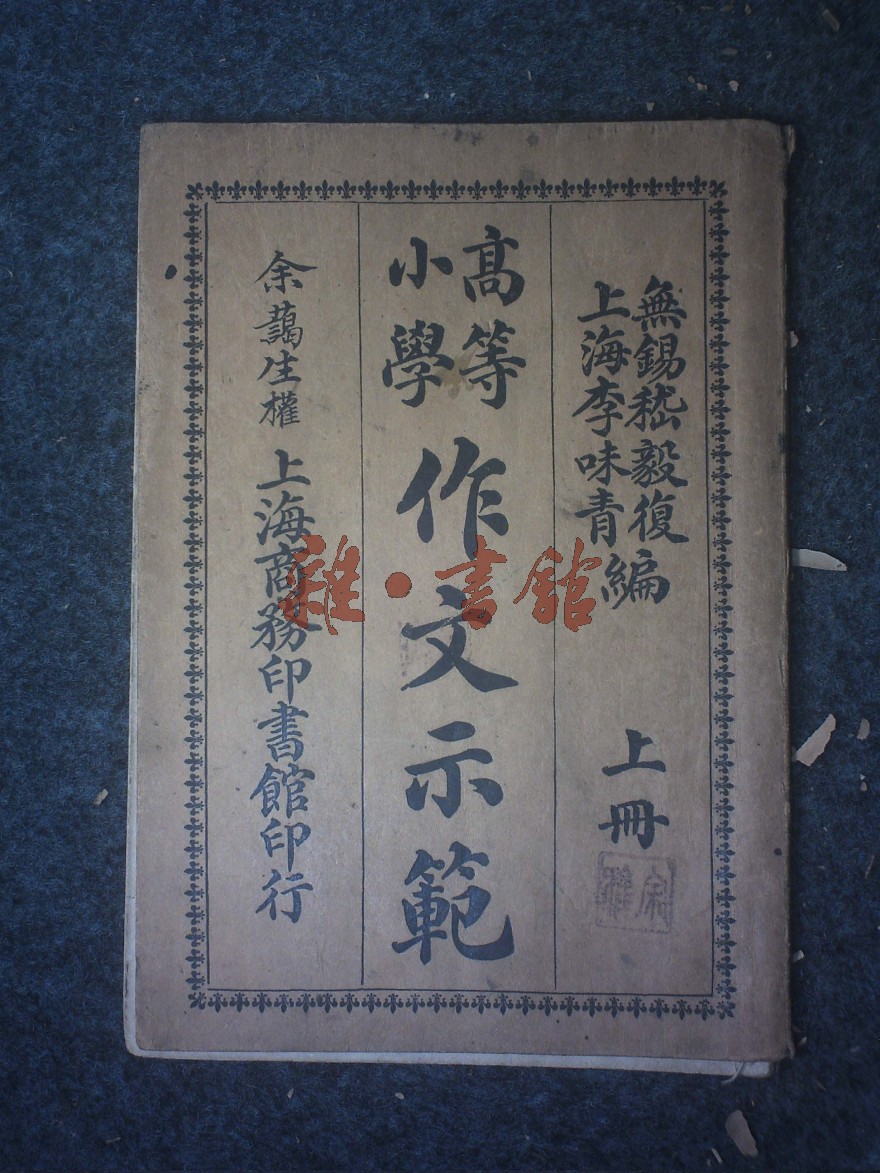 無錫嵇毅復
上海李味青
編
上冊
高等
小學
作文示範
余藹生權
上海商務印書館印行
雜·書館